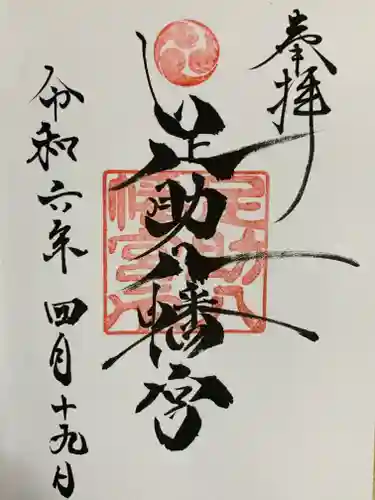 奉拝
足助八幡宮
足助八幡宮八
令和六年四月十九日